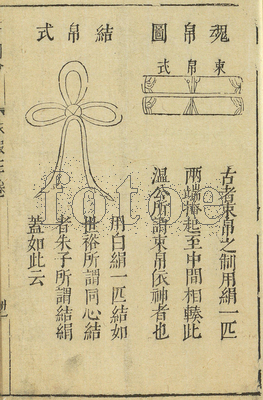 魂帛圖
束帛式
古者束帛之制用絹一匹
兩端捲起至中間相輳此
溫公所謂束帛依神者也
結帛式
用白絹一匹結如
世俗所謂同心結
者朱子所謂結絹
蓋如此云
fotoe